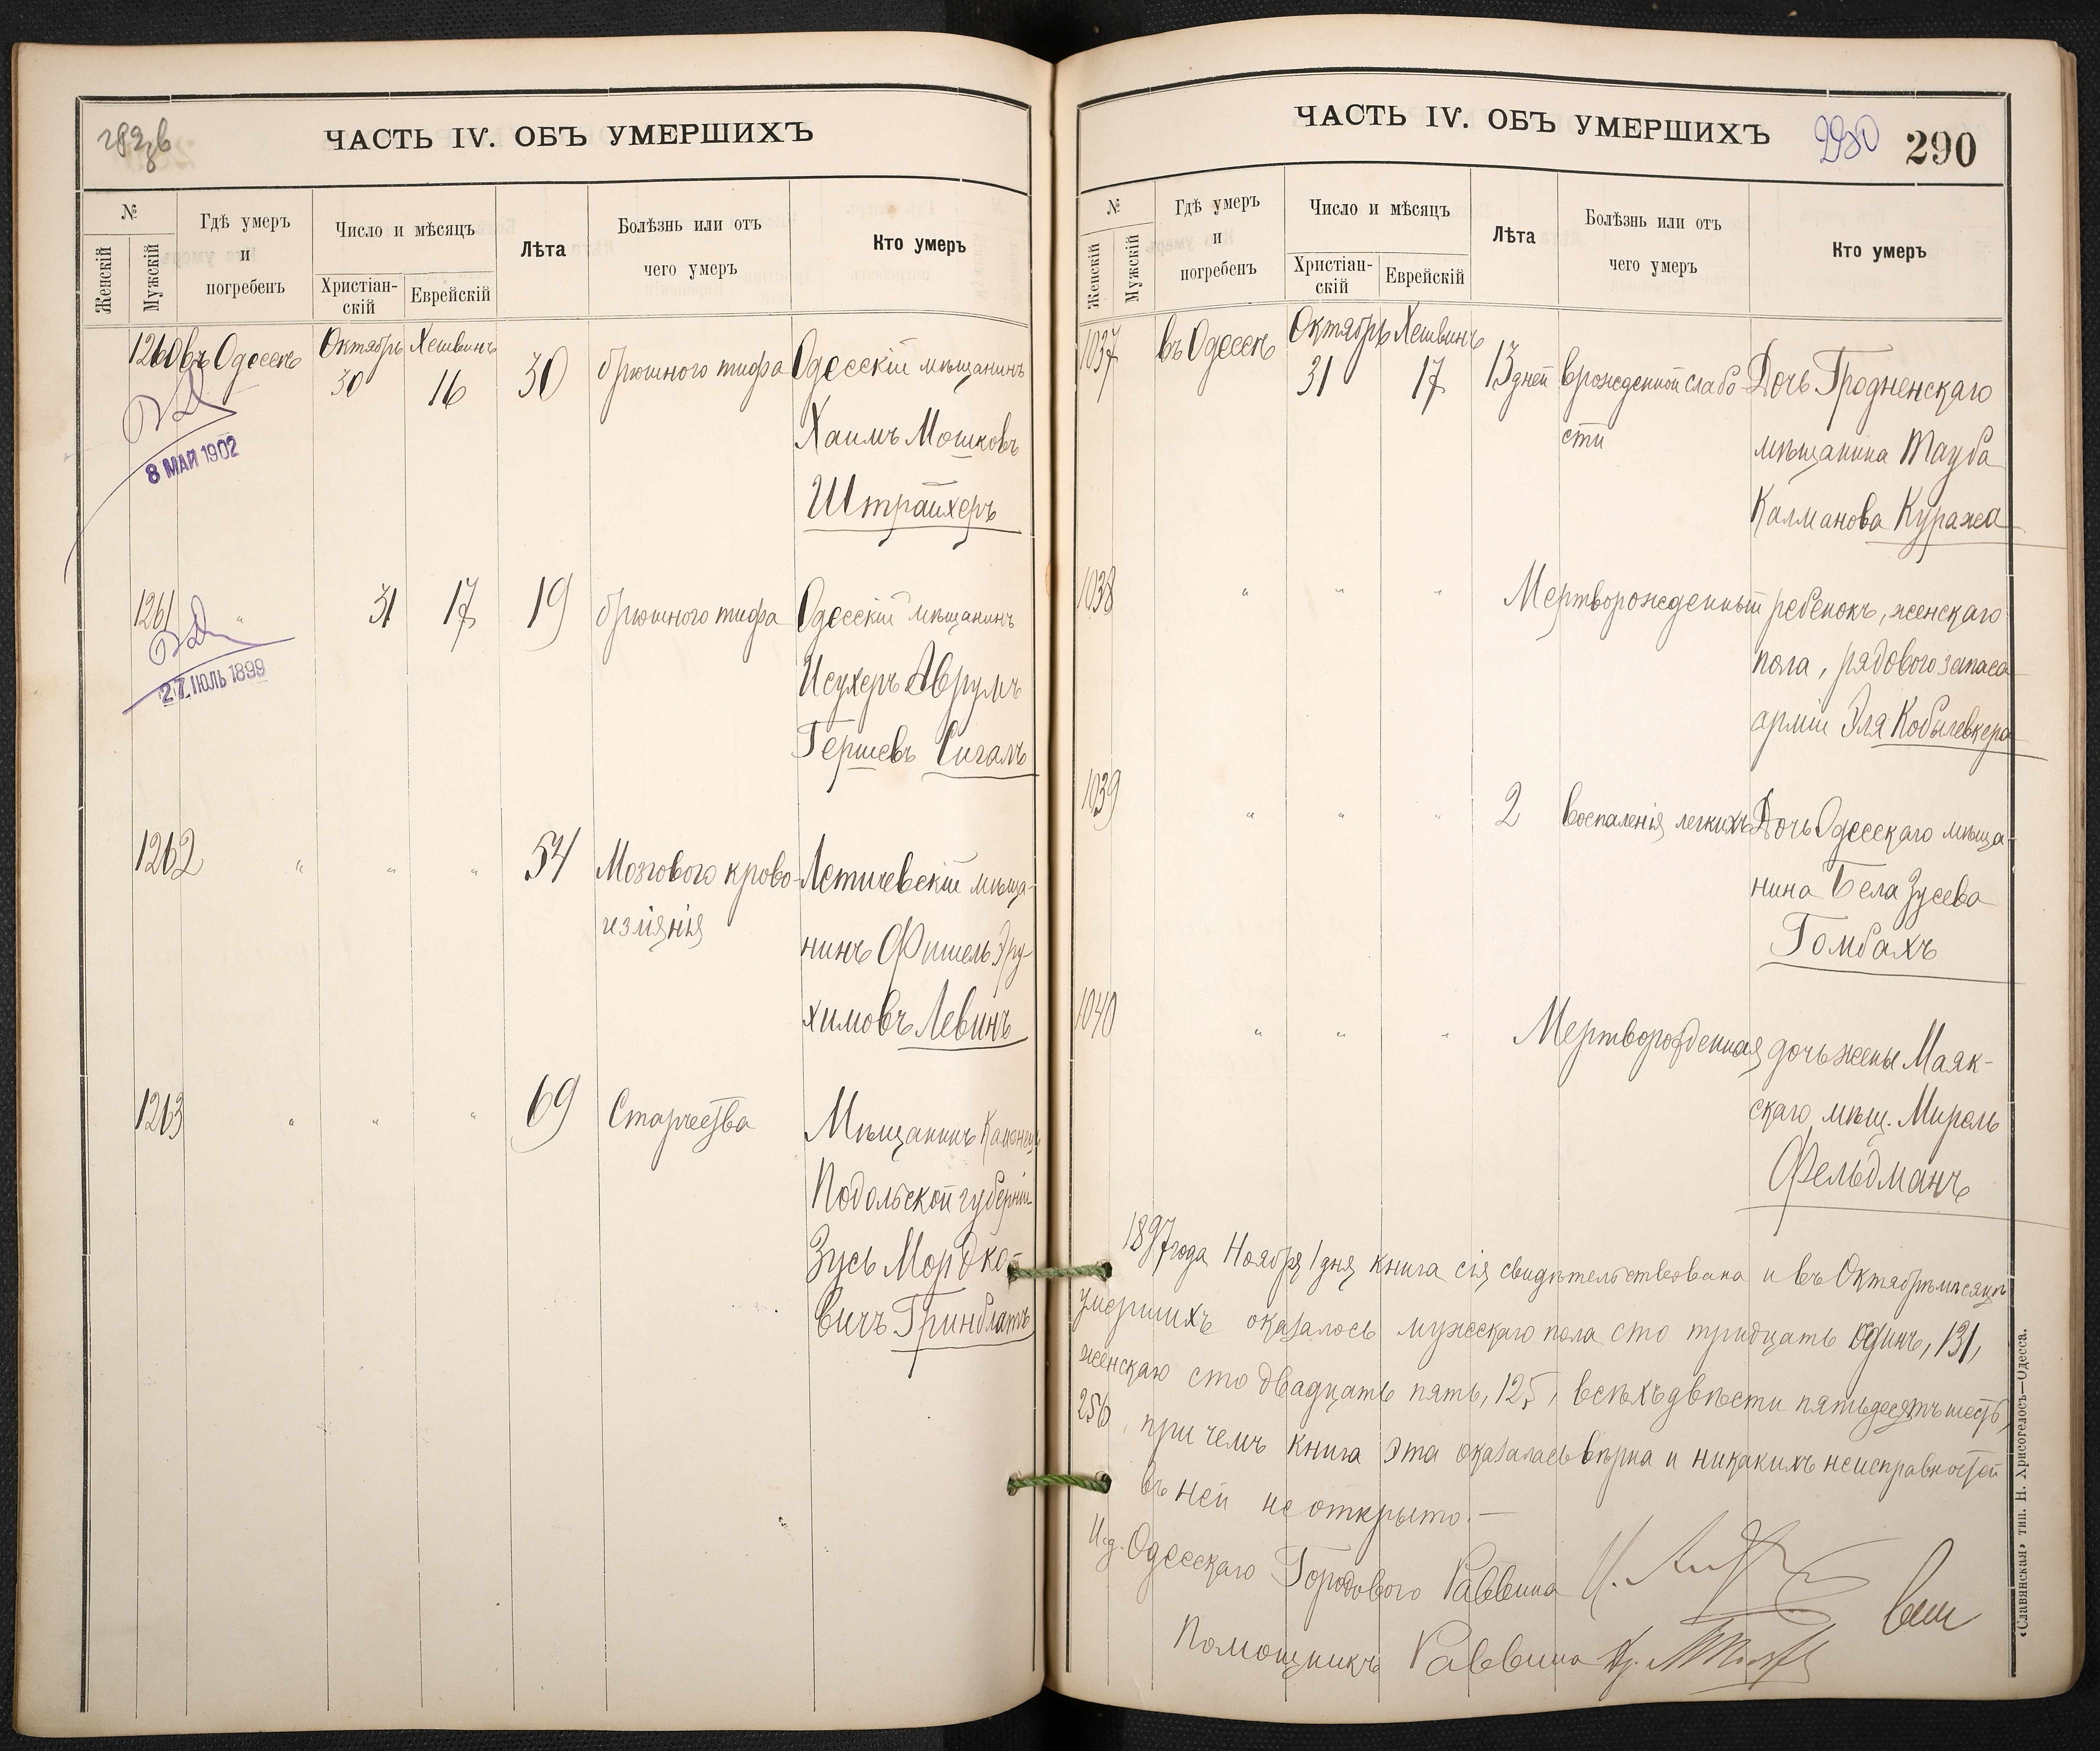 ЧАСТЬ IV. ОБЪ УМЕРШИХЪ
№
Женскій
Мужскій
Гдѣ умеръ
и
погребенъ
Число и мѣсяцъ
Христіан-
скій
Еврейскій
Лѣта
Болѣзнь или отъ
чего умеръ
Кто умеръ
1260 въ Одессѣ Октябрь Хешвинъ 30 брюшного тифа Одесскій мѣщанинъ
30 16
Хаимъ Мошковъ
Штрайхеръ
8 МАЙ 1902
1261 " 31 17 19 брюшного тифа Одесскій мѣщанинъ
Исухеръ Аврумъ
Гершевъ Сигалъ
27 ІЮЛЬ 1899
1262 " " " 54 Мозгового крово- Летичевскій мѣща-
изліянія
нинъ Фишель Эру-
химовъ Левинъ
1263 " " " 69 Старчества Мѣщанинъ Каменец
Подольской губерніи
Зусь Мордко-
вичъ Гринблатъ
ЧАСТЬ IV. ОБЪ УМЕРШИХЪ
290
290
№
Женскій
Мужскій
Гдѣ умеръ
и
погребенъ
Число и мѣсяцъ
Христіан-
скій
Еврейскій
Лѣта
Болѣзнь или отъ
чего умеръ
Кто умеръ
1037 въ Одессѣ Октябрь Хешвинъ 13 дней врожденной слабо- Дочь Гродненскаго
31 17 сти
мѣщанина Тауба
Калманова Куража
1038 " " " Мертворожденный ребенокъ, женскаго
пола, рядового запаса
арміи Эля Кобылевкера
1039 " " " 2 воспаленія легкихъ Дочь Одесскаго мѣща-
нина Бела Зусева
Гомбахъ
1040 " " " Мертворожденная дочь жены Маяк-
скаго мѣщ. Мирель
Фельдманъ
1897 года Ноября 1 дня книга сія свидѣтельствована и въ Октябрѣ мѣсяцѣ
умершихъ оказалось мужескаго пола сто тридцать одинъ, 131,
женскаго сто двадцать пять, 125, всѣхъ двѣсти пятьдесятъ шесть,
256, при чемъ книга эта оказалась вѣрна и никакихъ неисправностей
въ ней не открыто.—
И.д. Одесскаго Городового Раввина
Помощникъ Раввина
«Славянская» тип. Н. Хрисогелосъ—Одесса.